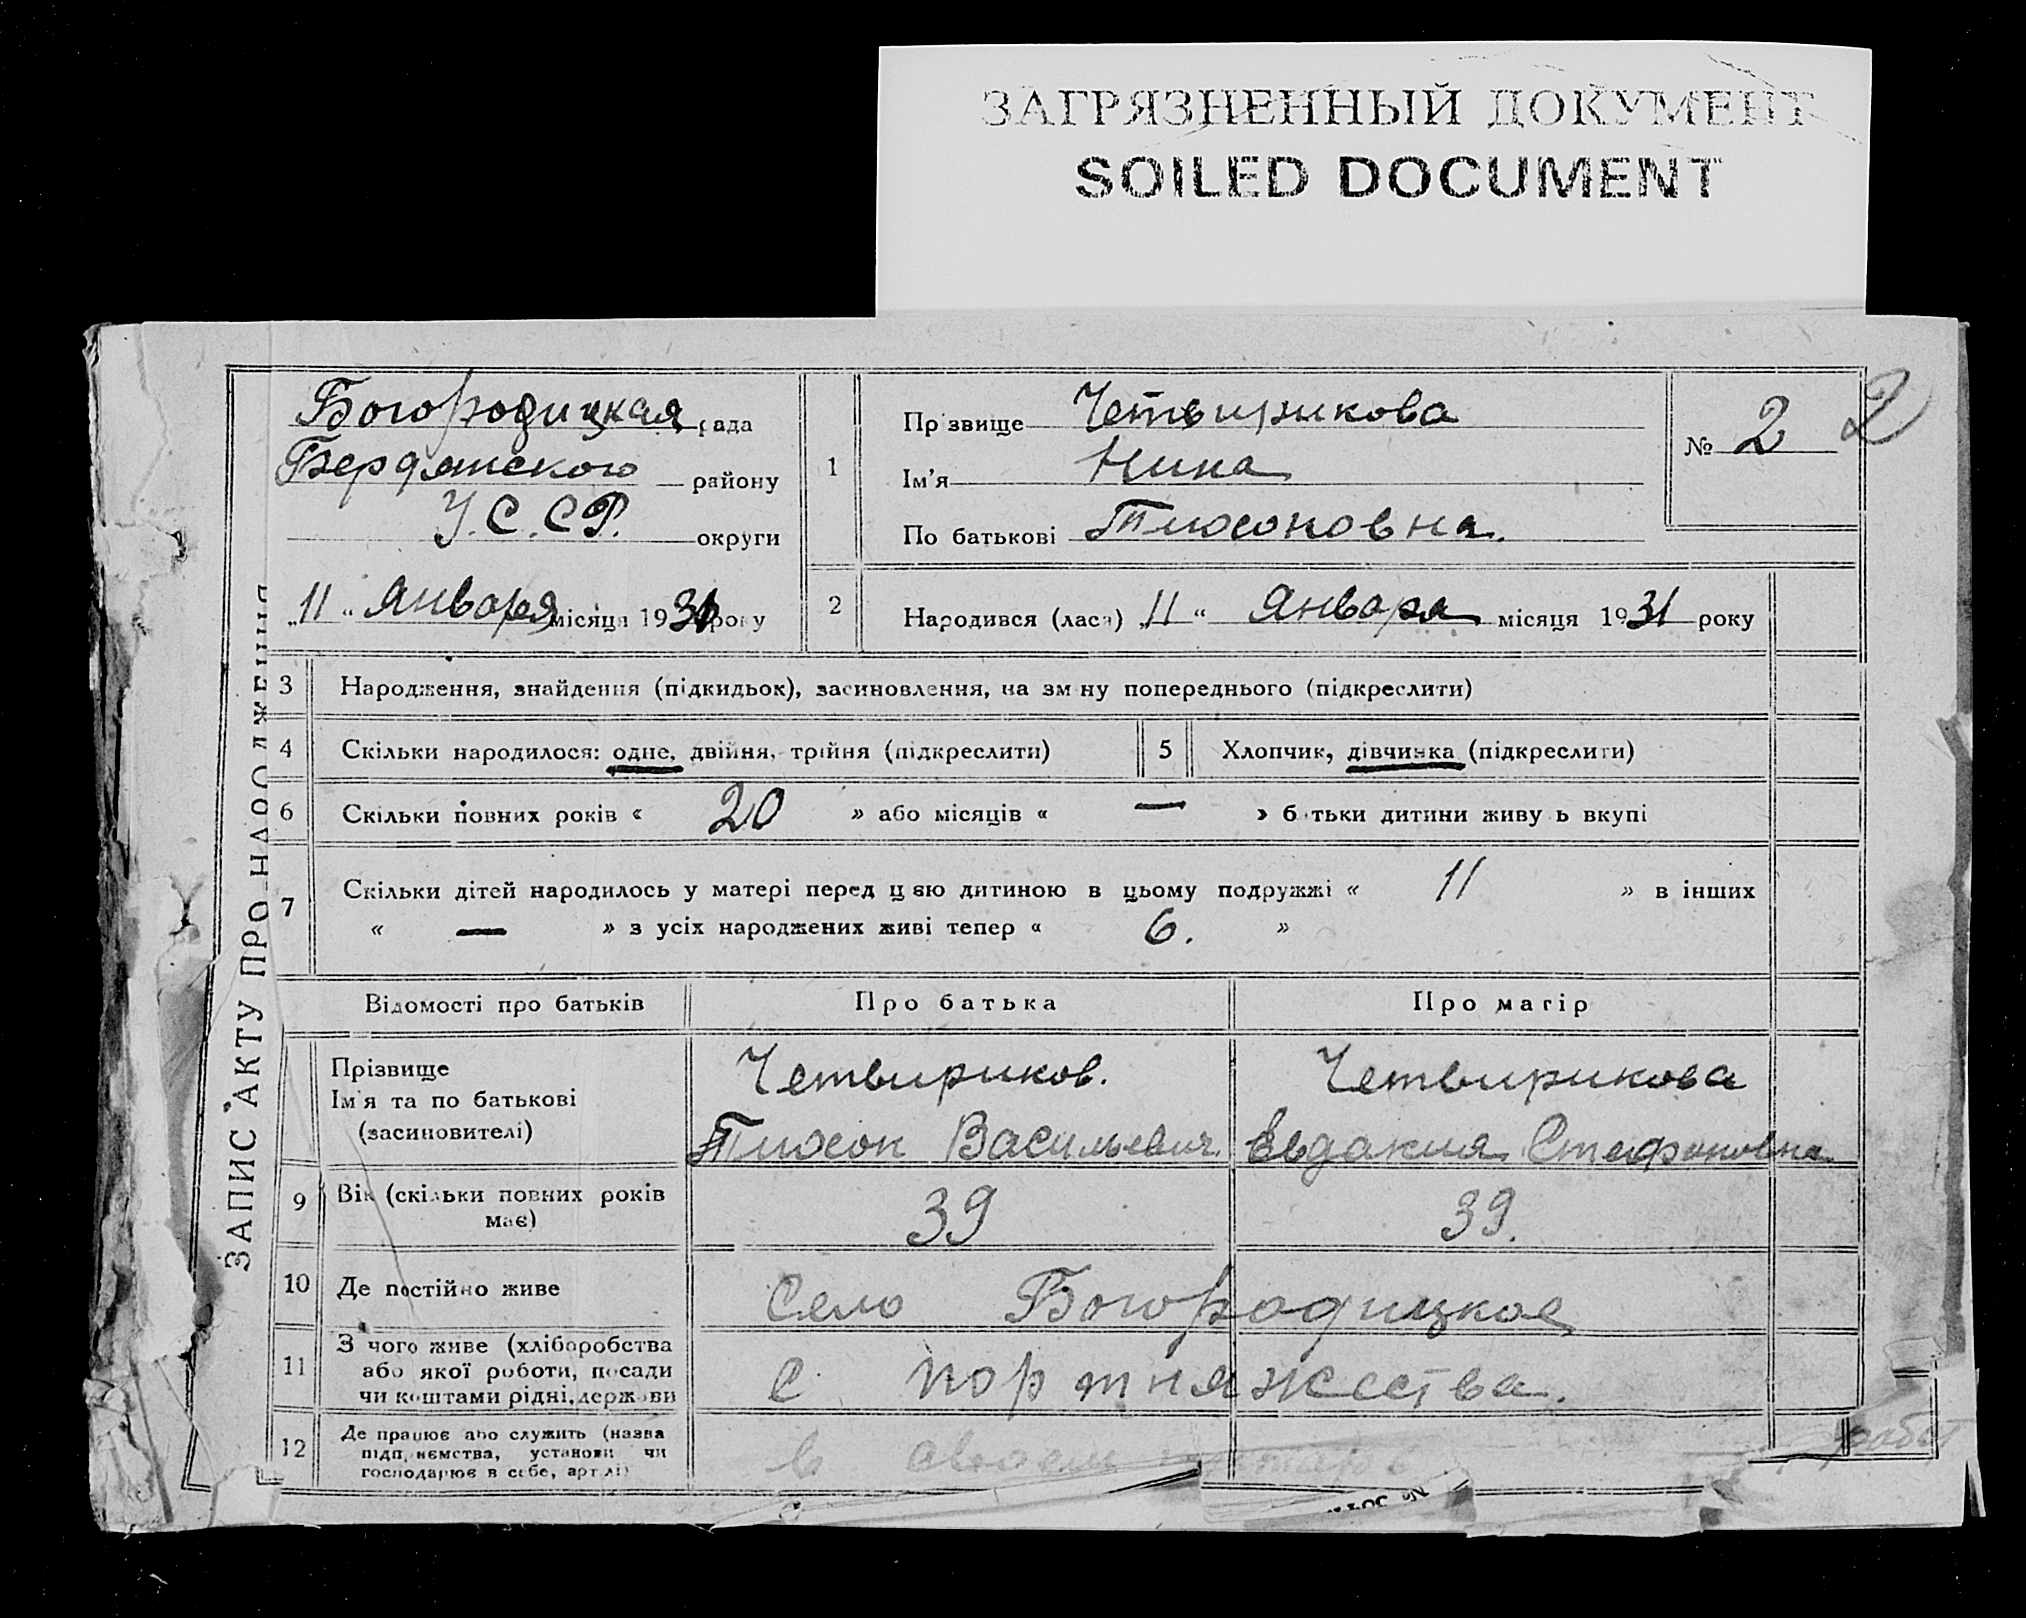 ЗАГРЯЗНЕННЫЙ ДОКУМЕНТ
SOILED DOCUMENT
ЗАПИС АКТУ ПРО НАРОДЖЕННЯ
Богородицкая рада
Бердянского району
У.С.С.Р. округи
„11“ Января місяця 1931 року
1
Прізвище Четвирикова
Ім'я Нина
По батькові Тихоновна.
№ 2
2
2
Народився (лася) „11“ Января місяця 1931 року
3 Народження, знайдення (підкидьок), засиновлення, на зміну попереднього (підкреслити)
4 Скільки народилося: одне, двійня, трійня (підкреслити)
5 Хлопчик, дівчинка (підкреслити)
6 Скільки повних років « 20 » або місяців « — » батьки дитини живуть вкупі
7 Скільки дітей народилось у матері перед цією дитиною в цьому подружжі « 11 » в інших
« — » з усіх народжених живі тепер « 6. »
Відомості про батьків Про батька Про матір
Прізвище
Ім'я та по батькові
(засиновителі)
Четвириков.
Тихон Васильевич.
Четвирикова
Евдакия Стефановна
9 Вік (скільки повних років
має)
39
39.
10 Де постійно живе
Село Богородицкое
11 З чого живе (хліборобства
або якої роботи, посади
чи коштами рідні, держави
с портняжества.
12 Де працює або служить (назва
підприємства, установи чи
господарює в себе, артілі)
в своем